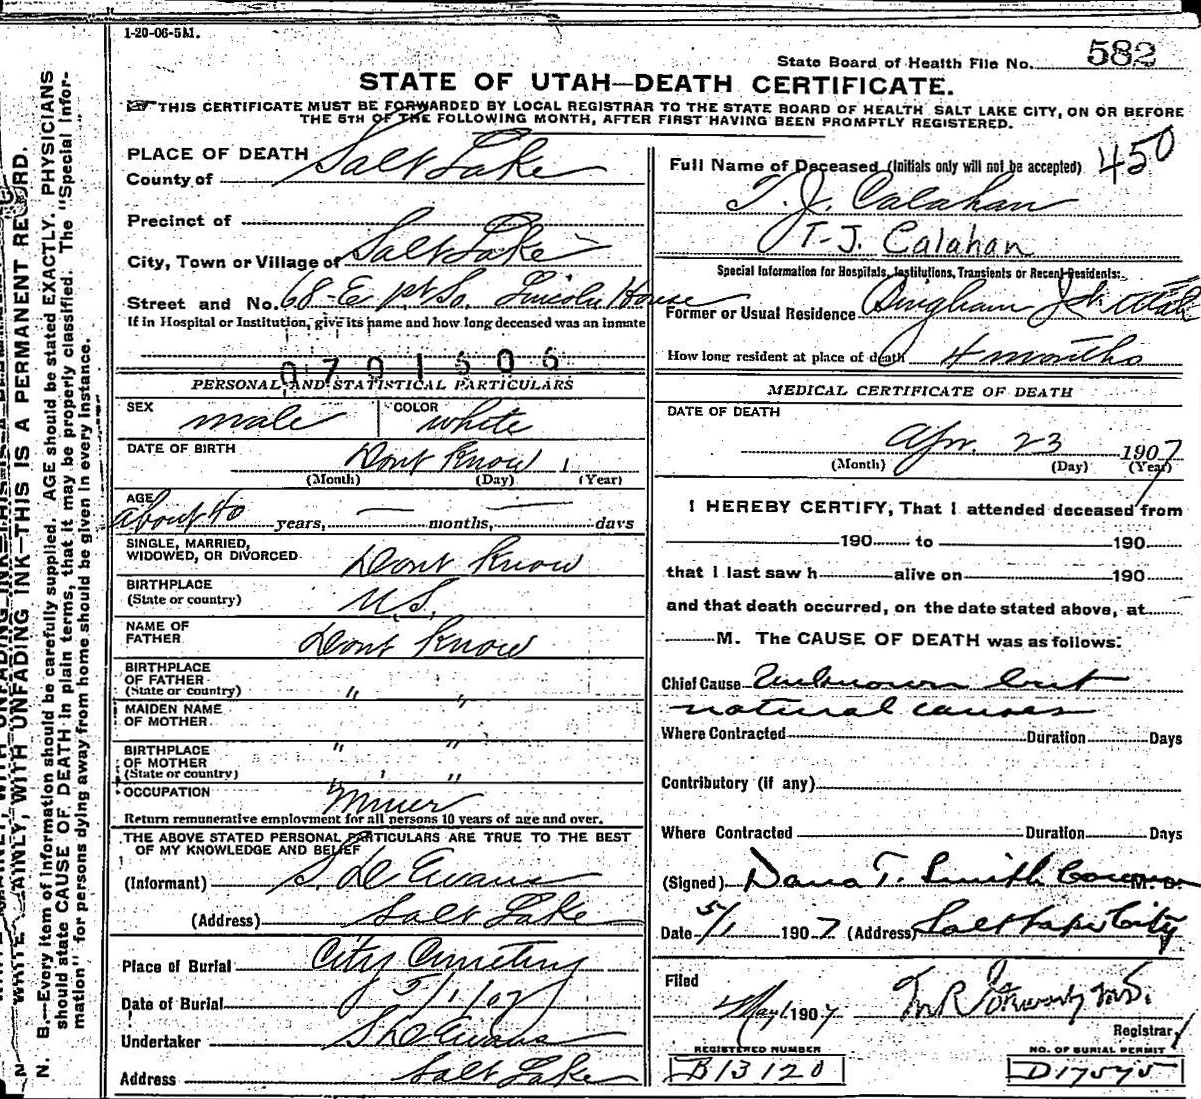 1-20-06-5M.
State Board of Health File No. 582
STATE OF UTAH—DEATH CERTIFICATE.
THIS CERTIFICATE MUST BE FORWARDED BY LOCAL REGISTRAR TO THE STATE BOARD OF HEALTH SALT LAKE CITY, ON OR BEFORE
THE 5TH OF THE FOLLOWING MONTH, AFTER FIRST HAVING BEEN PROMPTLY REGISTERED.
N. B.—Every item of Information should be carefully supplied. AGE should be stated EXACTLY. PHYSICIANS
should state CAUSE OF DEATH in plain terms, that it may be properly classified. The "Special Infor-
mation" for persons dying away from home should be given in every instance.
WRITE PLAINLY, WITH UNFADING INK—THIS IS A PERMANENT RECORD.
PLACE OF DEATH
County of Salt Lake
Precinct of
City, Town or Village of Salt Lake
Street and No. 68-E 1st So. Lincoln House
If in Hospital or Institution, give its name and how long deceased was an inmate
0701606
PERSONAL AND STATISTICAL PARTICULARS
SEX male COLOR white
DATE OF BIRTH Dont Know
(Month) (Day) (Year)
AGE about 40 years, — months, — days
SINGLE, MARRIED,
WIDOWED, OR DIVORCED Dont Know
BIRTHPLACE
(State or country) U.S.
NAME OF
FATHER Dont Know
BIRTHPLACE
OF FATHER
(State or country) " "
MAIDEN NAME
OF MOTHER
" "
BIRTHPLACE
OF MOTHER
(State or country) " "
OCCUPATION Miner
Return remunerative employment for all persons 10 years of age and over.
THE ABOVE STATED PERSONAL PARTICULARS ARE TRUE TO THE BEST
OF MY KNOWLEDGE AND BELIEF
(Informant) S. D. Evans
(Address) Salt Lake
Place of Burial City Cemetery
Date of Burial 5/1/07
Undertaker S. D. Evans
Address Salt Lake
Full Name of Deceased (Initials only will not be accepted) 450
T. J. Calahan
T-J. Calahan
Special Information for Hospitals, Institutions, Transients or Recent Residents:
Former or Usual Residence Bingham Jct Utah
How long resident at place of death 4 months
MEDICAL CERTIFICATE OF DEATH
DATE OF DEATH
Apr. 23 1907
(Month) (Day) (Year)
I HEREBY CERTIFY, That I attended deceased from
190 to 190
that I last saw h alive on 190
and that death occurred, on the date stated above, at
M. The CAUSE OF DEATH was as follows:
Chief Cause Unknown but
natural causes
Where Contracted Duration Days
Contributory (if any)
Where Contracted Duration Days
(Signed) Dana T. Smith Coroner M. D.
Date 5/1 1907 (Address) Salt Lake City
Filed
May 1 1907 M.D.
Registrar
REGISTERED NUMBER
B13120
NO. OF BURIAL PERMIT
D17575